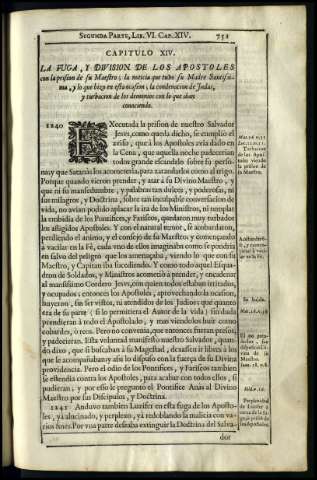 SEGUNDA PARTE, LIB. VI. CAP. XIV. 751
CAPITULO XIV.
LA FUGA, Y DIVISION DE LOS APOSTOLES
con la prision de su Maestro; la noticia que tubo su Madre Santissi-
ma, y lo que hizo en esta ocasion, la condenacion de Judas,
y turbacion de los demonios con lo que iban
conociendo.
1240 EXecutada la prision de nuestro Salvador
Jesvs, como queda dicho, se cumpliò el
aviso, que à los Apostoles avia dado en
la Cena, que aquella noche padecerian
todos grande escandalo sobre su perso-
na, y que Satanàs los acometeria para zarandarlos como al trigo.
Porque quando vieron prender, y atar à su Divino Maestro, y
que ni su mansedumbre, y palabras tan dulces, y poderosas, ni
sus milagros, y Doctrina, sobre tan inculpable conversacion de
vida, no avian podido aplacar la ira de los Ministros, ni templar
la embidia de los Pontifices, y Fariseos, quedaron muy turbados
los afligidos Apostoles. Y con el natural temor, se acobardaron,
perdiendo el animo, y el consejo de su Maestro, y començando
à vacilar en la Fè, cada uno de ellos imaginaba como se pondria
en salvo del peligro que los amenaçaba, viendo lo que con su
Maestro, y Capitan iba sucediendo. Y como todo aquel Esqua-
dron de Soldados, y Ministros acometiò à prender, y encadenar
al mansissimo Cordero Jesvs, con quien todos estaban irritados,
y ocupados; entonces los Apostoles, aprovechando la ocasion,
huyeron, sin ser vistos, ni atendidos de los Judios; que quanto
era de su parte (si lo permitiera el Autor de la vida) sin duda
prendieran à todo el Apostolado, y mas viendolos huir como
cobardes, ò reos. Pero no convenia, que entonces fueran presos,
y padecieran. Esta voluntad manifestò nuestro Salvador, quan-
do dixo, que si buscaban à su Magestad, dexassen ir libres à los
que le acompañaban; y assi lo dispuso con la fuerça de su Divina
providencia. Pero el odio de los Pontifices, y Fariseos tambien
se estendia contra los Apostoles, para acabar con todos ellos, si
pudieran; y por esso le preguntò el Pontifice Anàs al Divino
Maestro por sus Discipulos, y Doctrina.
1241 Anduvo tambien Luzifer en esta fuga de los Aposto-
les, yà alucinado, y perplexo, yà redoblando la malicia con va-
rios fines. Por una parte deseaba extinguir la Doctrina del Salva-
dor